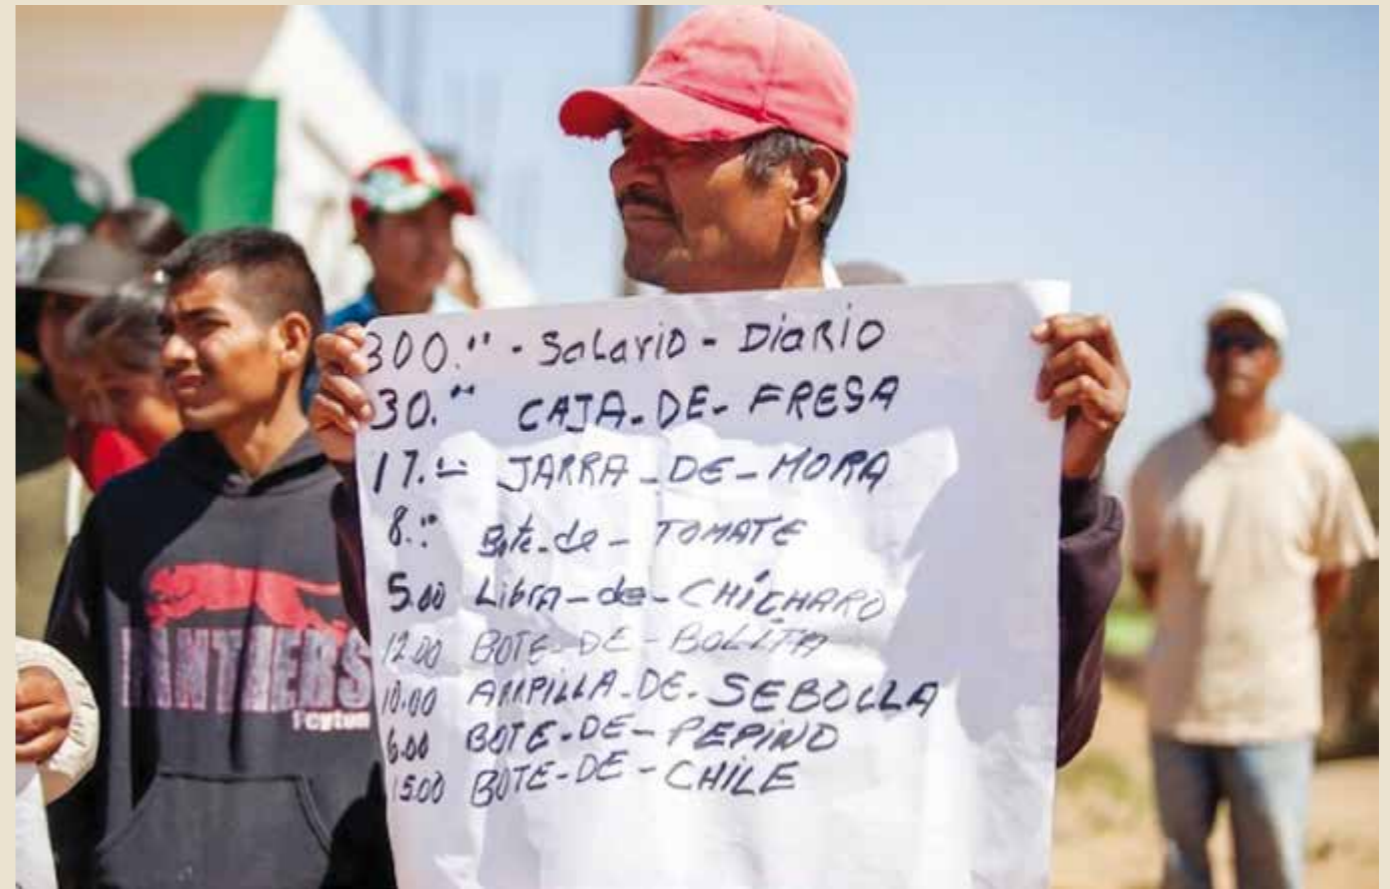 300." - Salario - Diario
30." CAJA-DE-FRESA
17.= JARRA-DE-MORA
8." Bote-de-TOMATE
5.00 Libra-de-CHÍCHARO
12.00 BOTE-DE-BOLITA
10.00 AMPILLA-DE-SEBOLLA
6.00 BOTE-DE-PEPINO
15.00 BOTE-DE-CHILE
PANTHERS
Peyton